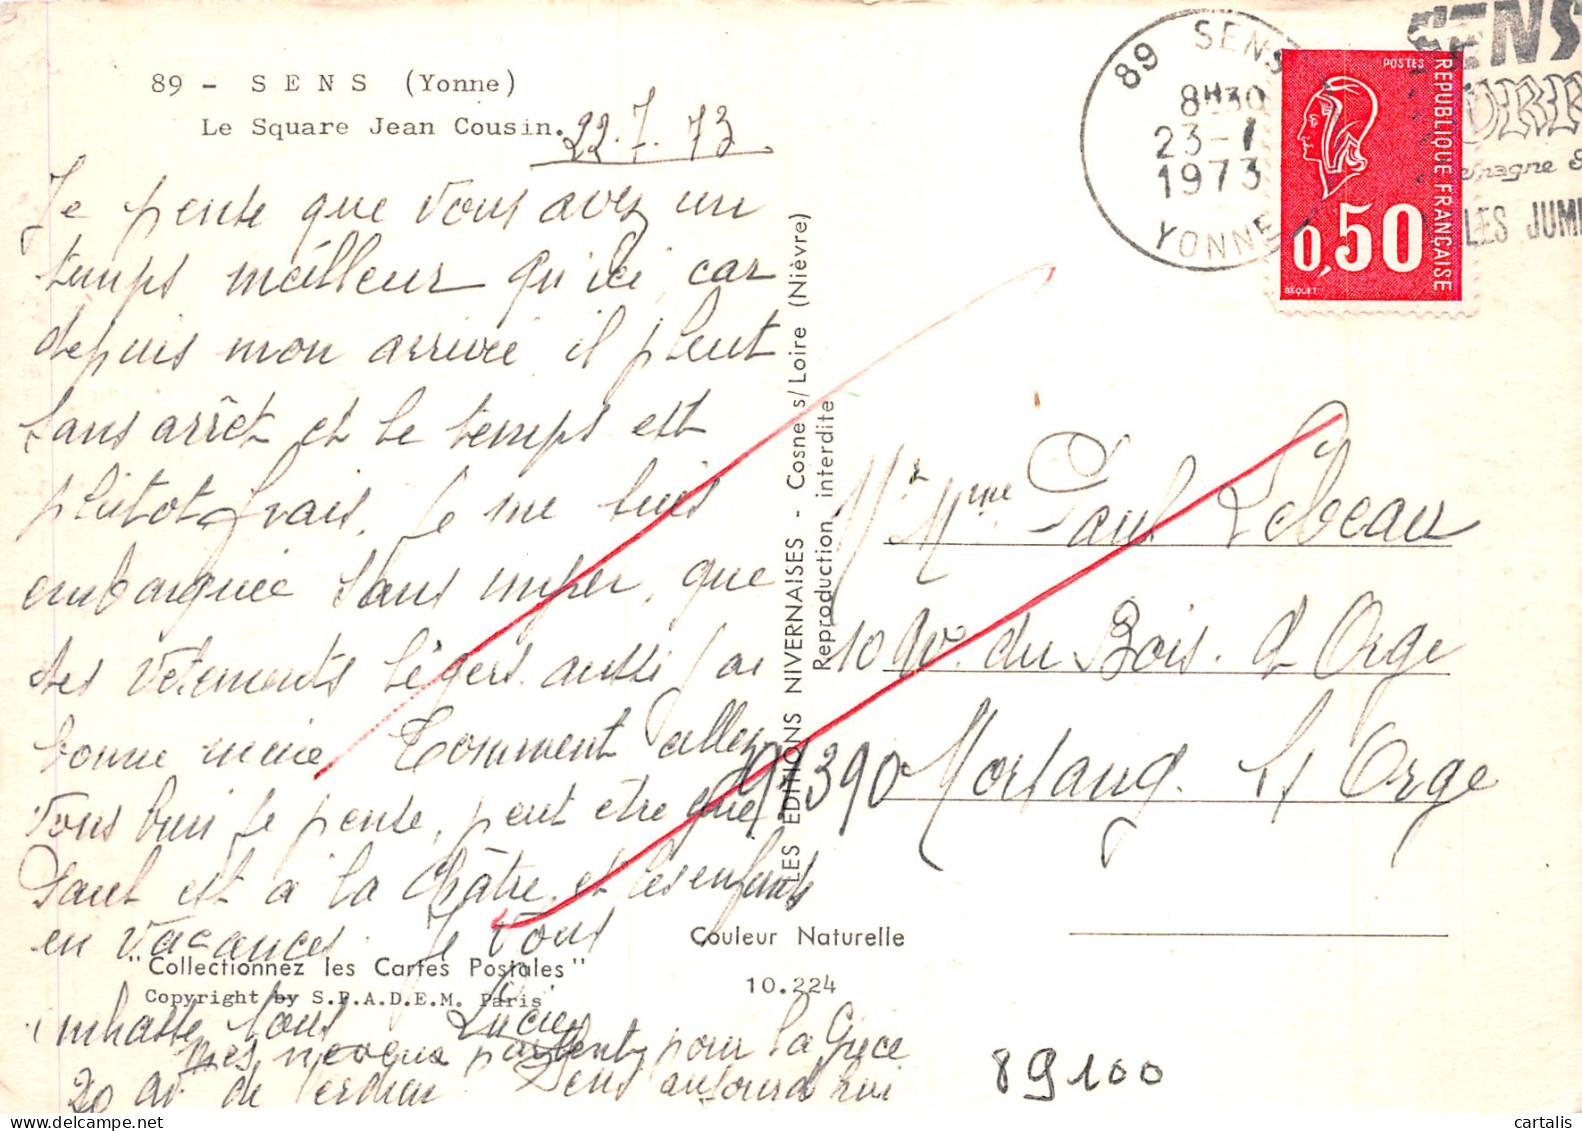 89 - SENS (Yonne)
Le Square Jean Cousin.
22.7.73
Je pense que vous avez un
temps meilleur qu'ici, car
depuis mon arrivée il pleut
sans arrêt et le temps est
plutot frais. Je me suis
embarquée sans imper, que
des vêtements légers aussi j'ai
bonne mine Comment allez
vous bien je pense, peut etre que
Paul est à la Châtre et les enfants
en vacances. Je vous
embrasse tous Lucie
mes neveux partent pour la Grèce
aujourd'hui
20 av. de Verdun Sens
"Collectionnez les Cartes Postales"
Copyright by S.P.A.D.E.M. Paris
LES EDITIONS NIVERNAISES - Cosne s/Loire (Nièvre)
Reproduction interdite
Couleur Naturelle
10.224
89 SENS
8H30
23-7
1973
YONNE
SENS
LES JUM
POSTES
REPUBLIQUE FRANÇAISE
0,50
BEQUET
Mr Mme Paul Lebeau
10 Av. du Bois. d Orge
91390 Morsang. s/ Orge
89100
cartalis